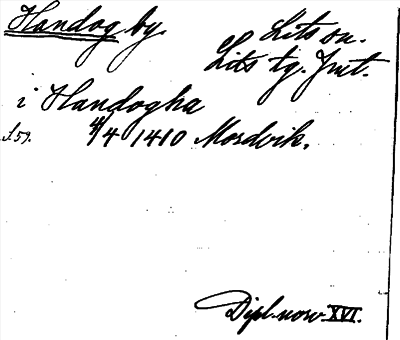 Handog by.
Lits sn.
Lits tg. Jmt.
i Handogha
s. 59. 4/4 1410 Mordvik.
Dipl. norv. XVI.